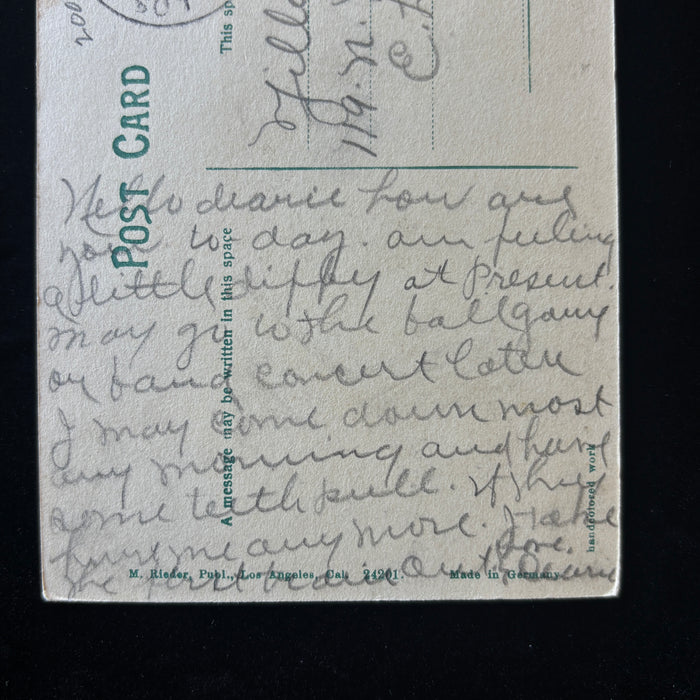 200
POST CARD
This sp
119. N.
E.
A message may be written in this space
Hello dearie how are
you to-day. am feeling
a little dippy at present.
may go to the ball game
or band concert later
I may come down most
any morning and have
some teeth pull. if they
hurt me any more. I take
the first train out Dearie
love.
handcolored work
M. Rieder, Publ., Los Angeles, Cal. 24201. Made in Germany.